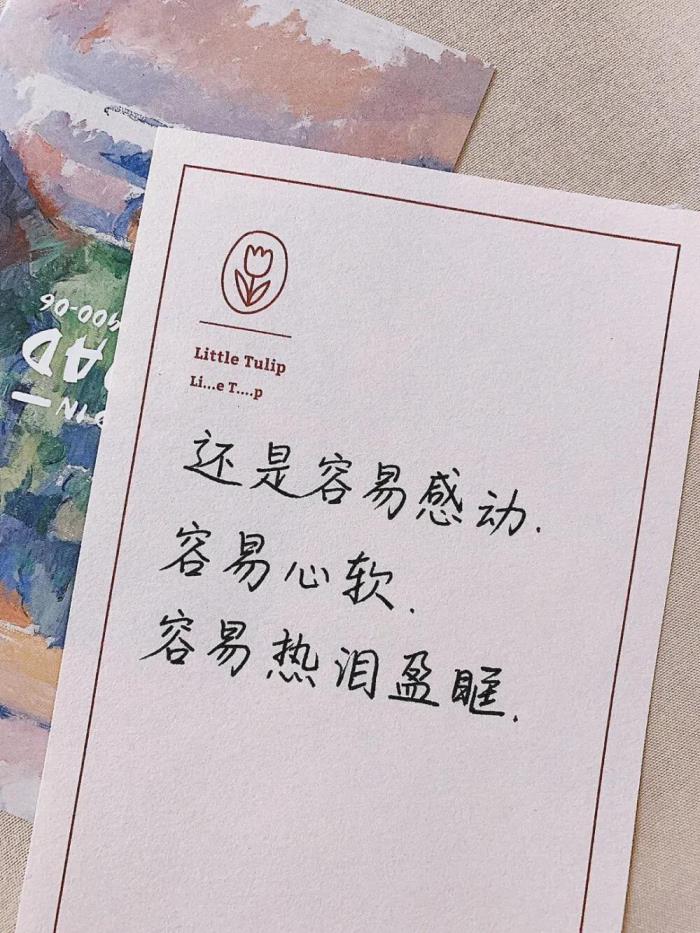 Little Tulip
Li...e T....p
还是容易感动.
容易心软.
容易热泪盈眶.